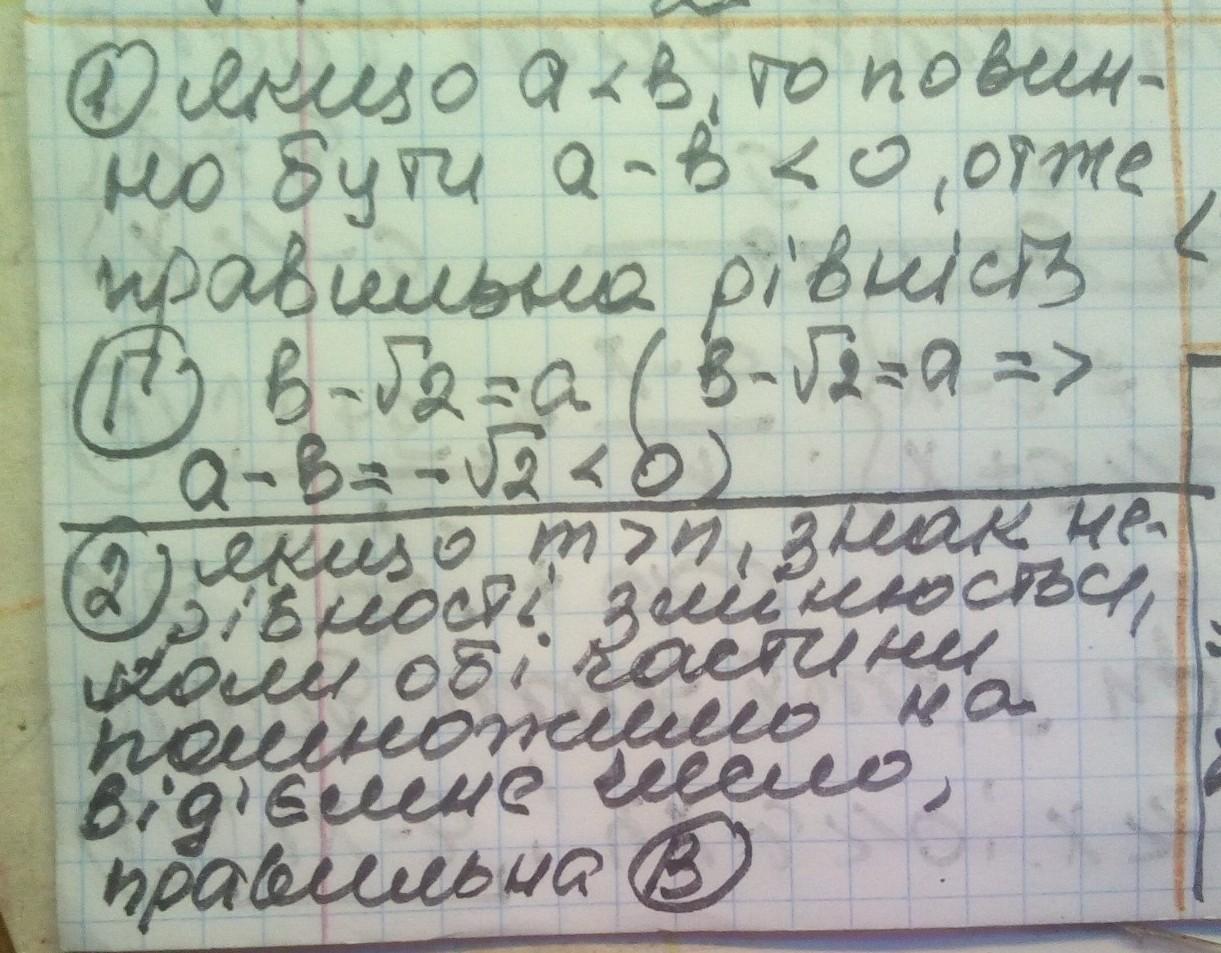 ① Якщо а < в, то повин-
но бути а - в < 0, отже
правильна рівність
Г в - √2 = а ( в - √2 = а =>
а - в = - √2 < 0 )
② Якщо m > n, знак не-
рівності змінюється,
коли обі частини
помножимо на
від'ємне число,
правильна В